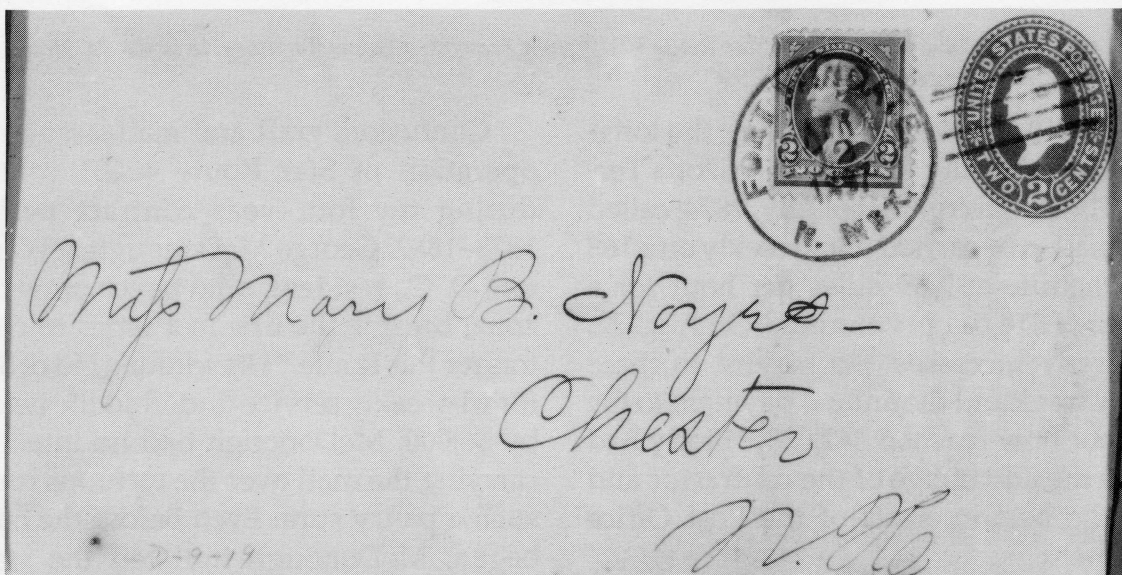 UNITED STATES POSTAGE
TWO 2 CENTS
FORT
N. MEX.
2 2
Miss Mary B. Noyes-
Chester
N. H.
D-9-19